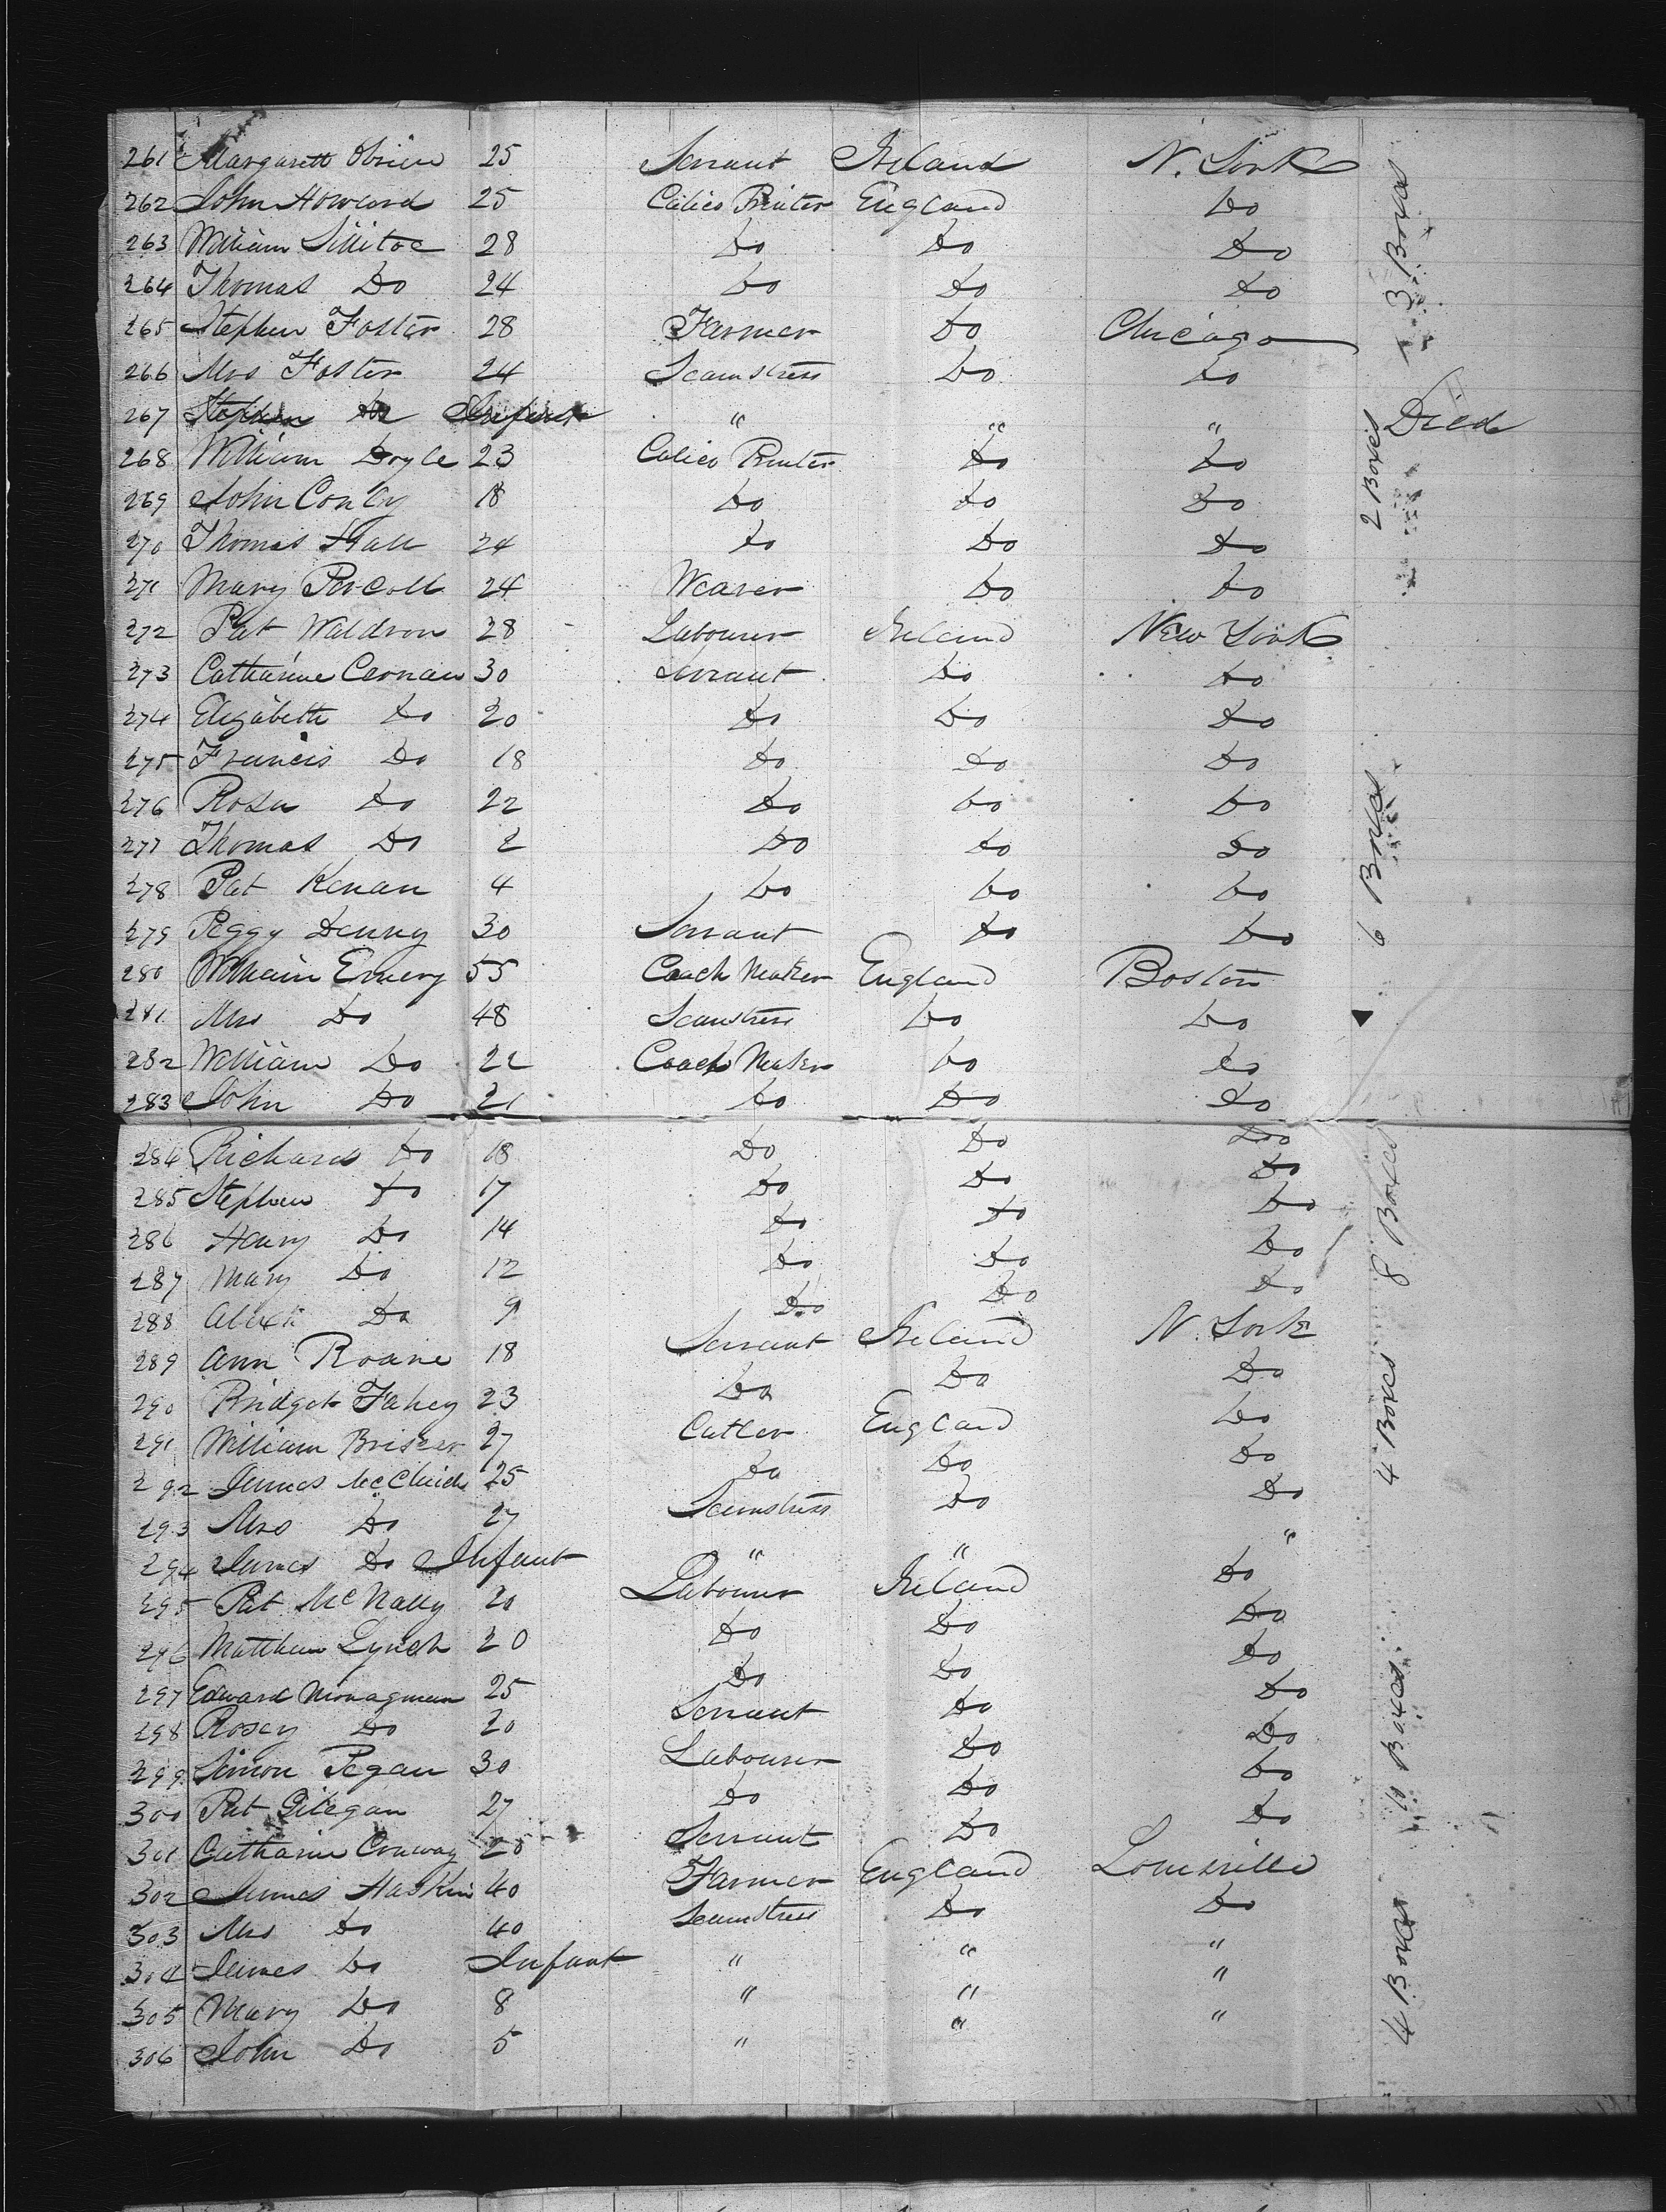 261 Margarett Obrien 25 Servant Ireland N. York
262 John Howard 25 Calico Printer England Do
263 William Sillitoe 28 Do Do Do
264 Thomas Do 24 Do Do Do
265 Stephen Foster 28 Farmer Do Chicago
3 Boxes
266 Mrs Foster 24 Seamstress Do Do
267 Stephen Do Infant " " " Died
268 William Doyle 23 Calico Printer Do Do
2 Boxes
269 John Conly 18 Do Do Do
270 Thomas Hall 24 Do Do Do
271 Mary 24 Weaver Do Do
272 Pat Waldron 28 Labourer Ireland New York
273 Catharine Cernan 30 Servant Do Do
274 Elizabeth Do 20 Do Do Do
275 Francis Do 18 Do Do Do
276 Rosa Do 22 Do Do Do
277 Thomas Do 2 Do Do Do
278 Pat Kenan 4 Do Do Do
6 Boxes
279 Peggy Denny 30 Servant Do Do
280 William Emery 55 Coach Maker England Boston
281 Mrs Do 48 Seamstress Do Do
282 William Do 22 Coach Maker Do Do
283 John Do 21 Do Do Do
284 Richard Do 18 Do Do Do
285 Stephen Do 17 Do Do Do
286 Henry Do 14 Do Do Do
8 Boxes
287 Mary Do 12 Do Do Do
288 Do 9 Do Do Do
289 Ann Roane 18 Servant Ireland N. York
290 Bridget Fahey 23 Do Do Do
4 Boxes
291 William 27 Cutler England Do
292 James 25 Do Do Do
293 Mrs Do 27 Seamstress Do Do
294 James Do Infant " " "
295 Pat McNally 20 Labourer Ireland Do
296 Matthew Lynch 20 Do Do Do
297 Edward 25 Do Do Do
298 Rosey Do 20 Servant Do Do
10 Boxes
299 Simon Pegan 30 Labourer Do Do
300 Pat 27 Do Do Do
301 Catharine Conway 20 Servant Do Do
302 James Haskin 40 Farmer England Louisville
303 Mrs Do 40 Seamstress Do Do
304 James Do Infant " " "
4 Boxes
305 Mary Do 8 " " "
306 John Do 5 " " "